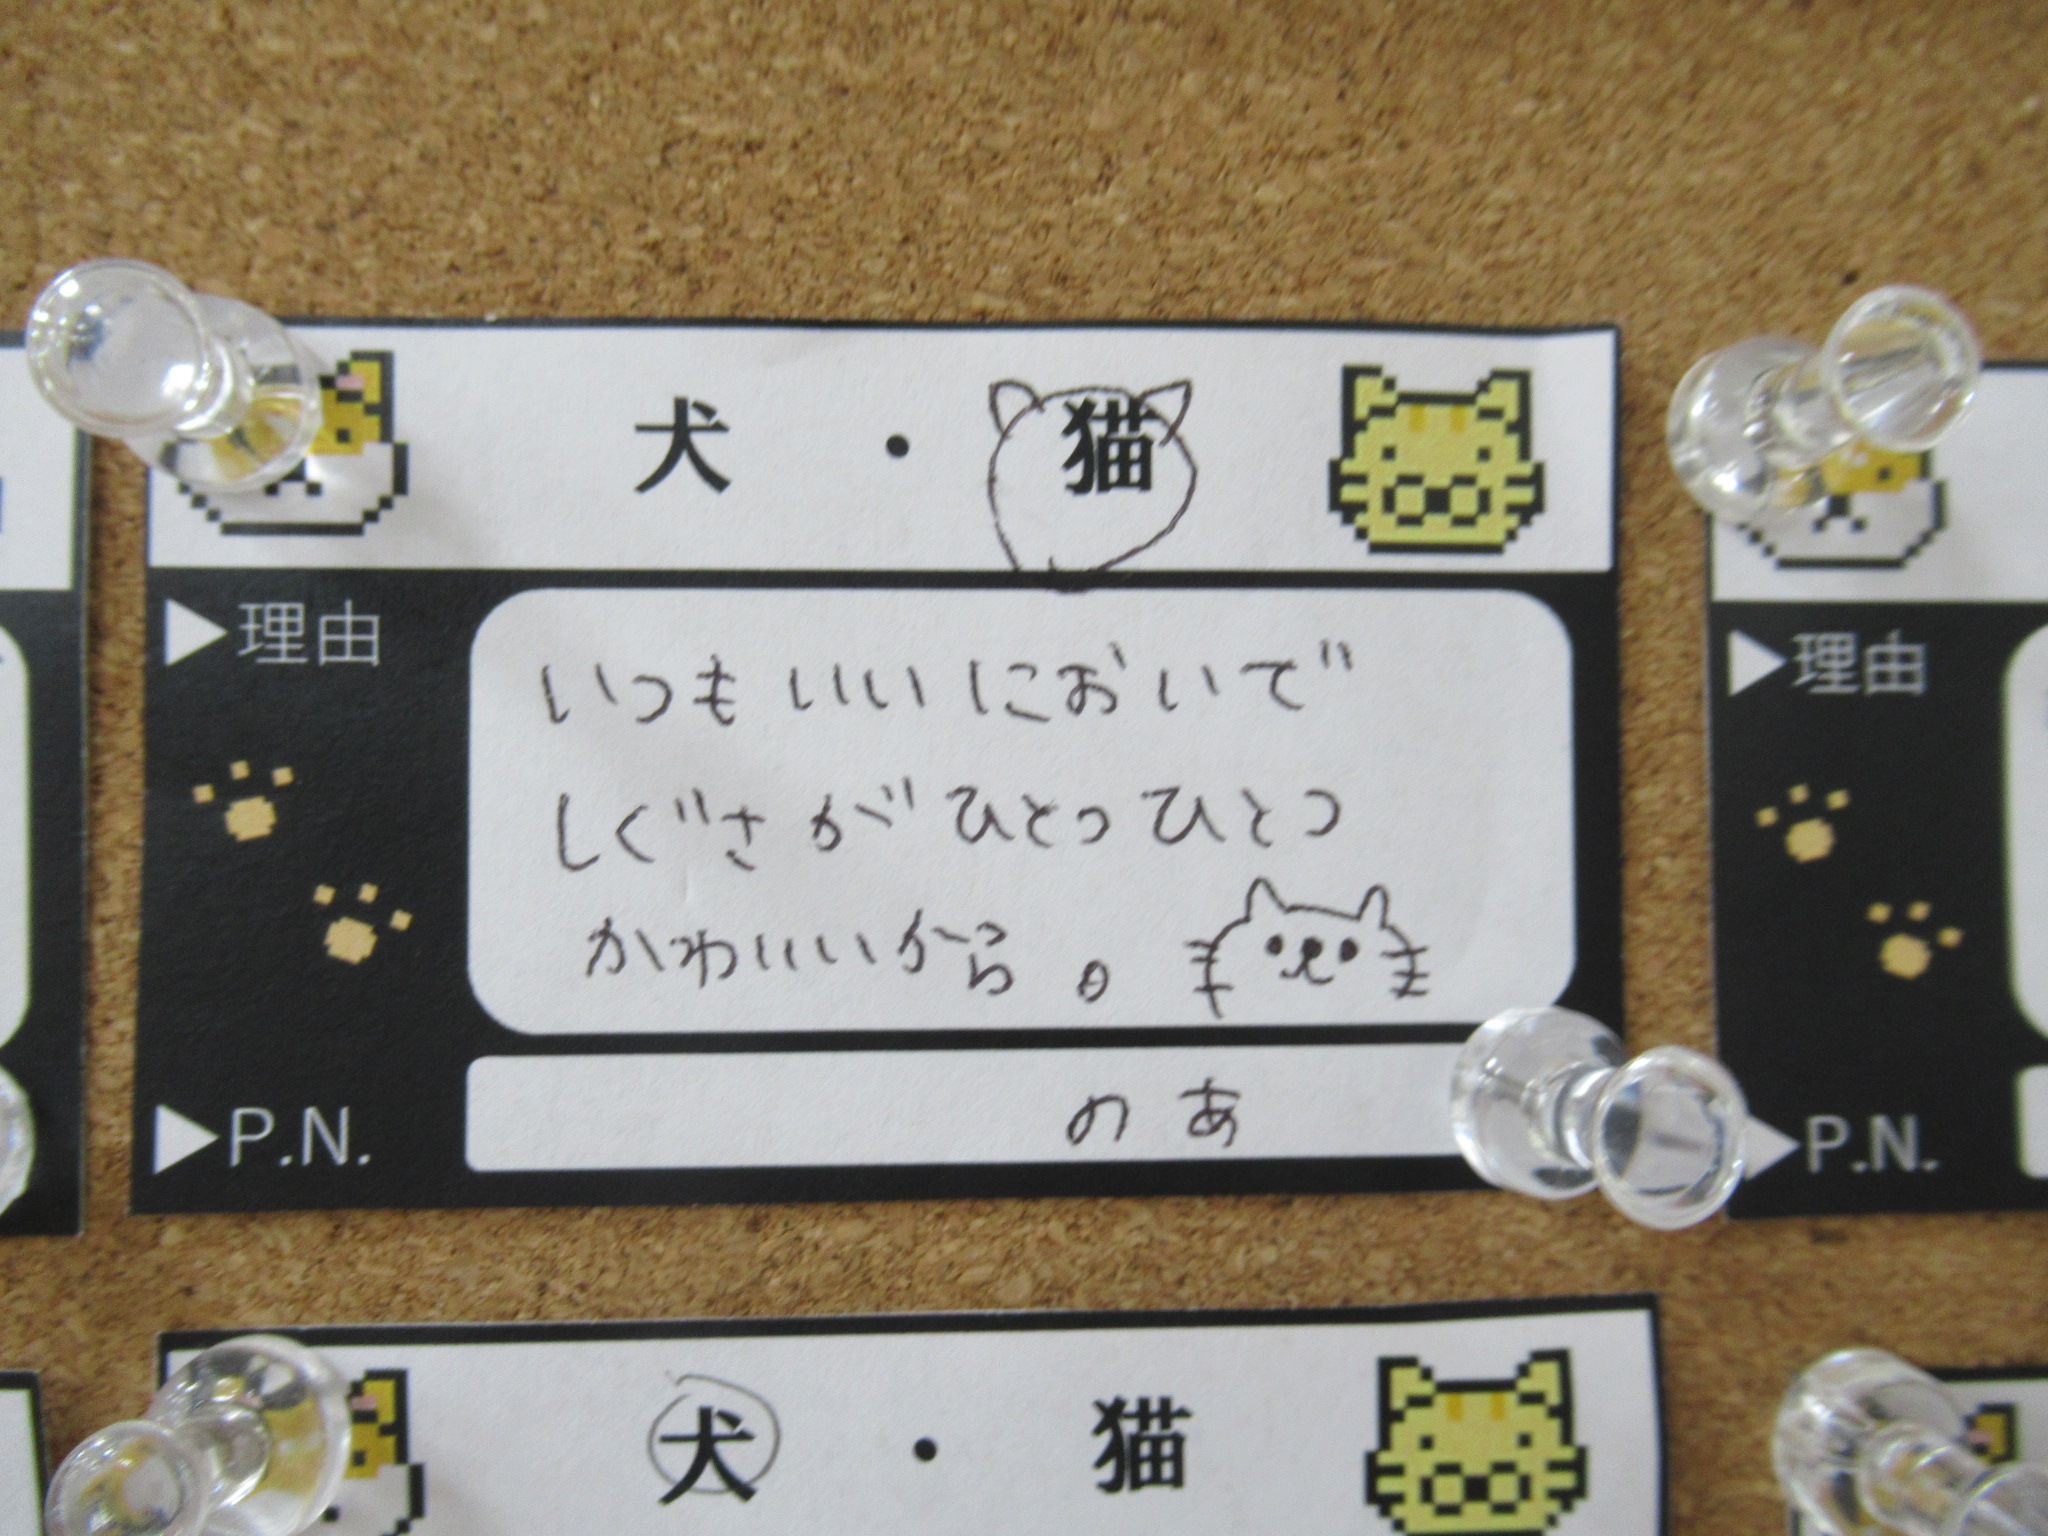 犬・猫
▶理由
いつもいいにおいで
しぐさがひとつひとつ
かわいいから。
▶P.N.
のあ
▶理由
▶P.N.
犬・猫